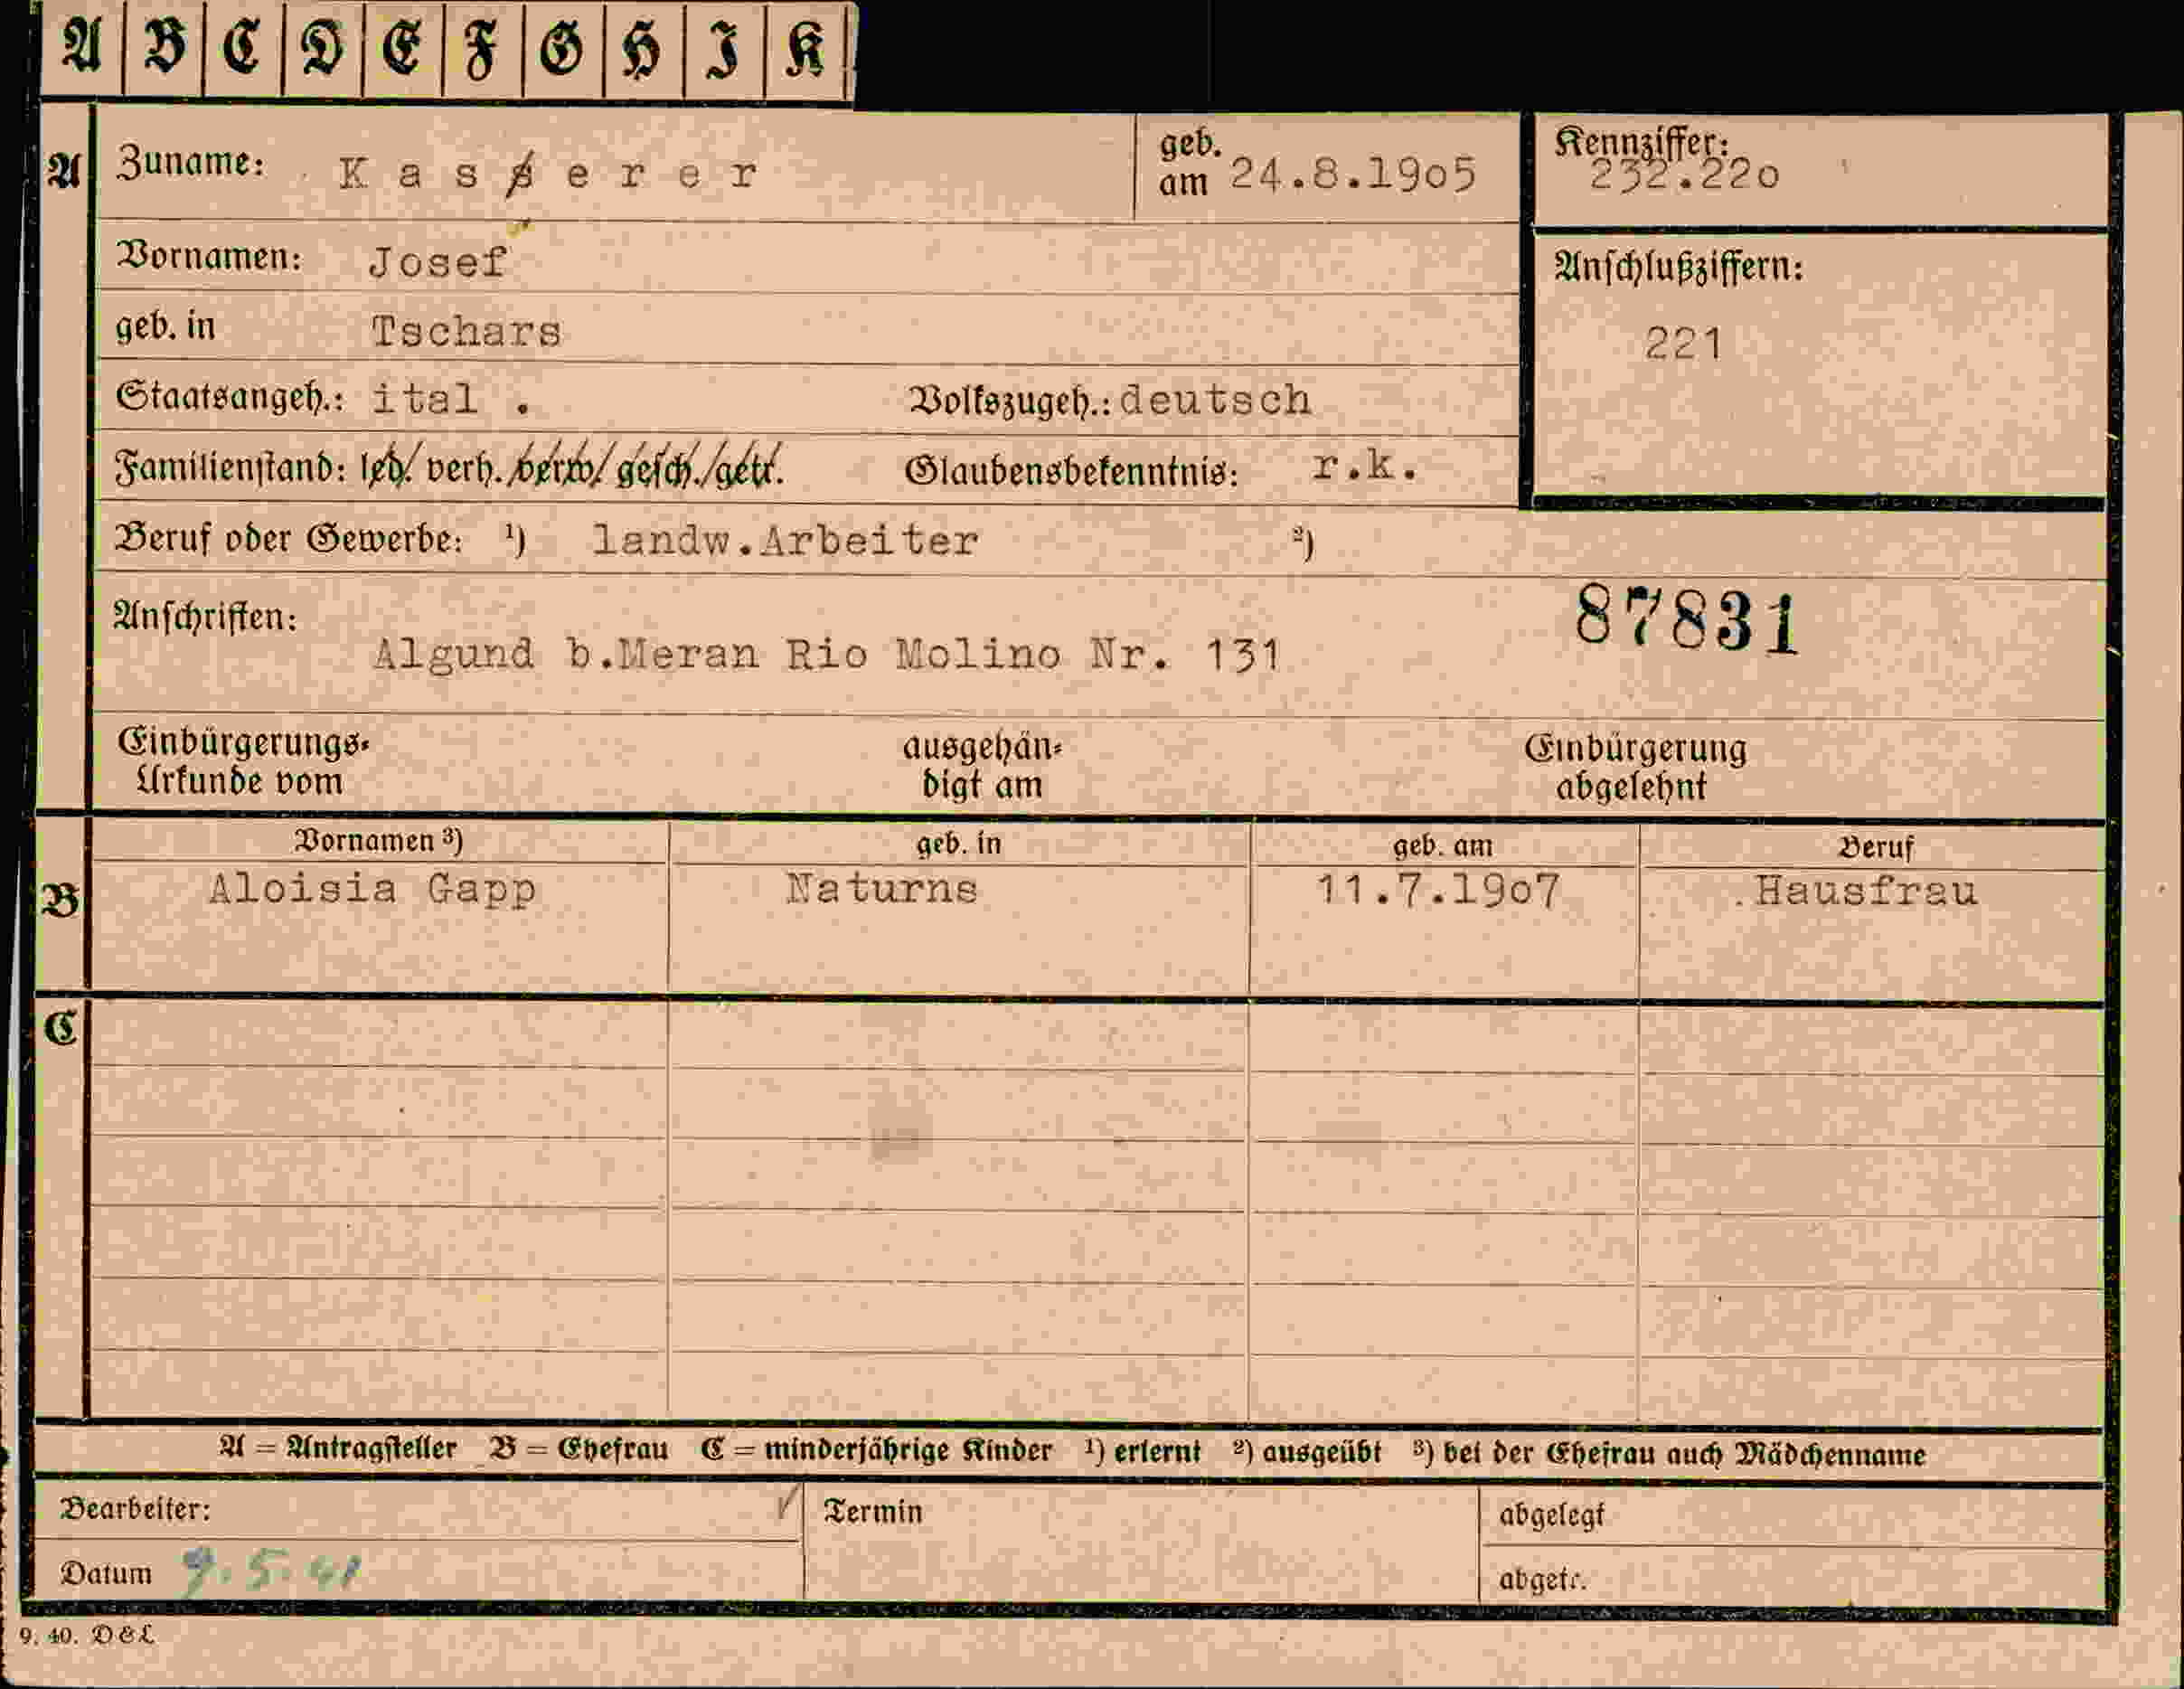 A B C D E F G H I K
A Zuname: Kasserer geb. am 24.8.19o5 Kennziffer: 232.22o
Vornamen: Josef Anschlußziffern:
geb. in Tschars 221
Staatsangeh.: ital . Volkszugeh.: deutsch
Familienstand: led./ verh./ verw./ gesch./ getr. Glaubensbekenntnis: r.k.
Beruf oder Gewerbe: ¹) landw.Arbeiter ²)
Anschriften: 87831
Algund b.Meran Rio Molino Nr. 131
Einbürgerungs- ausgehän- Einbürgerung
Urkunde vom digt am abgelehnt
Vornamen ³) geb. in geb. am Beruf
B Aloisia Gapp Naturns 11.7.19o7 Hausfrau
C
A = Antragsteller B = Ehefrau C = minderjährige Kinder ¹) erlernt ²) ausgeübt ³) bei der Ehefrau auch Mädchenname
Bearbeiter: Termin abgelegt
Datum 9.5.41 abgetr.
9. 40. D&L